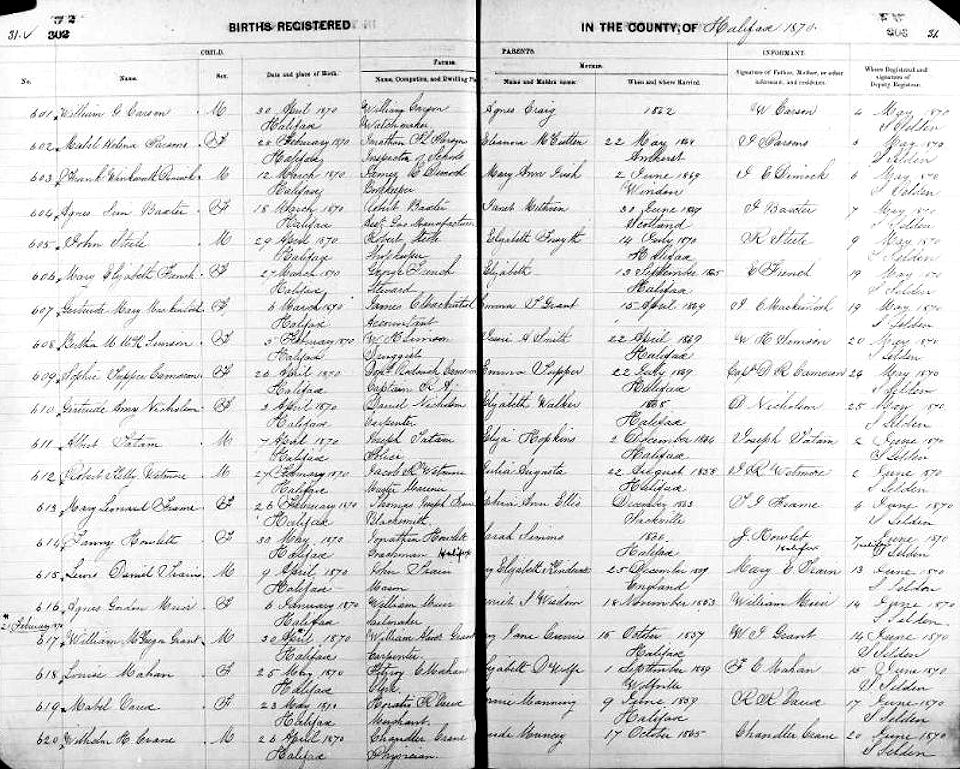 31 302 BIRTHS REGISTERED IN THE COUNTY OF Halifax 1870. 303 31
CHILD. PARENTS. INFORMANT.
Father. Mother.
No. Name. Sex. Date and place of Birth. Name, Occupation, and Dwelling Name and Maiden name. When and where Married. Signature of Father, Mother, or other informant, and residence. When Registered and signature of Deputy Registrar.
601 William G Carson M 30 April 1870 William Carson Agnes Craig 1862 W Carson 4 May 1870
Halifax Watchmaker S Selden
602 Mabel Helena Parsons F 28 February 1870 Jonathan Parsons Eleanor 22 May J Parsons 5 May 1870
Halifax Inspector of Schools Amherst S Selden
603 Frank Dimock M 12 March 1870 James Dimock Mary Ann 2 June 1869 Dimock 6 May 1870
Halifax Bookkeeper Windsor S Selden
604 Agnes Baxter F 18 March 1870 Robert Baxter Janet 30 June J Baxter 7 May 1870
Halifax Gas Manufacturer Scotland S Selden
605 John Steele M 29 April 1870 Robert Steele Elizabeth Forsyth 14 July 1870 R Steele 9 May 1870
Halifax Shopkeeper Halifax S Selden
606 Mary Elizabeth French F 27 March 1870 George French Elizabeth 13 September 1865 E French 19 May 1870
Halifax Steward Halifax S Selden
607 Gertrude Mary Mackintosh F 6 March 1870 James C Mackintosh Emma Grant 15 April 1869 J C Mackintosh 19 May 1870
Halifax Accountant S Selden
608 Bertha M Simson F 5 February 1870 W H Simson A Smith 22 April 1869 W H Simson 20 May 1870
Halifax Druggist Halifax S Selden
609 Sophie Tupper Cameron F 26 April 1870 Cameron Emma Tupper 22 July 1869 Capt D R Cameron 24 May 1870
Halifax Captain R A Halifax S Selden
610 Gertrude Amy Nicholson F 2 April 1870 Daniel Nicholson Elizabeth Walker 1865 D Nicholson 25 May 1870
Halifax Carpenter Halifax S Selden
611 Albert Tatam M 7 April 1870 Joseph Tatam Eliza Hopkins 2 December Joseph Tatam 2 June 1870
Halifax Police Halifax S Selden
612 Robert Kelly Wetmore M 27 February 1870 Jacob R Wetmore Augusta 22 August 1858 J R Wetmore 2 June 1870
Halifax Master Mariner Halifax S Selden
613 Mary Leonard Frame F 26 February 1870 Thomas Joseph Frame Ann Ellis December 1863 T J Frame 4 June 1870
Halifax Blacksmith Sackville S Selden
614 Fanny Howlett F 30 May 1870 Jonathan Howlett Sarah Simms J Howlet 7 June 1870
Halifax Coachman Halifax Halifax Halifax S Selden
615 Lewis Daniel M 9 April 1870 John Elizabeth 25 December Mary E 13 June 1870
Halifax Mason England S Selden
616 Agnes Gordon Muir F 6 January 1870 William Muir J Wisdom 18 November 1863 William Muir 14 June 1870
21 February Halifax Sailmaker S Selden
617 William McGregor Grant M 30 April 1870 William Grant Jane Currie 15 October 1857 W J Grant 14 June 1870
Halifax Carpenter Halifax S Selden
618 Louise Mahan F 25 May 1870 Mahan Elizabeth D Wolfe 1 September 1859 F C Mahan 15 June 1870
Halifax Clerk Wolfville S Selden
619 Mabel Vaux F 23 May 1870 Horatio R Vaux Manning 9 June 1859 R R Vaux 17 June 1870
Halifax Merchant Halifax S Selden
620 Wilhelm H Crane M 26 April 1870 Chandler Crane 17 October 1865 Chandler Crane 20 June 1870
Halifax Physician S Selden